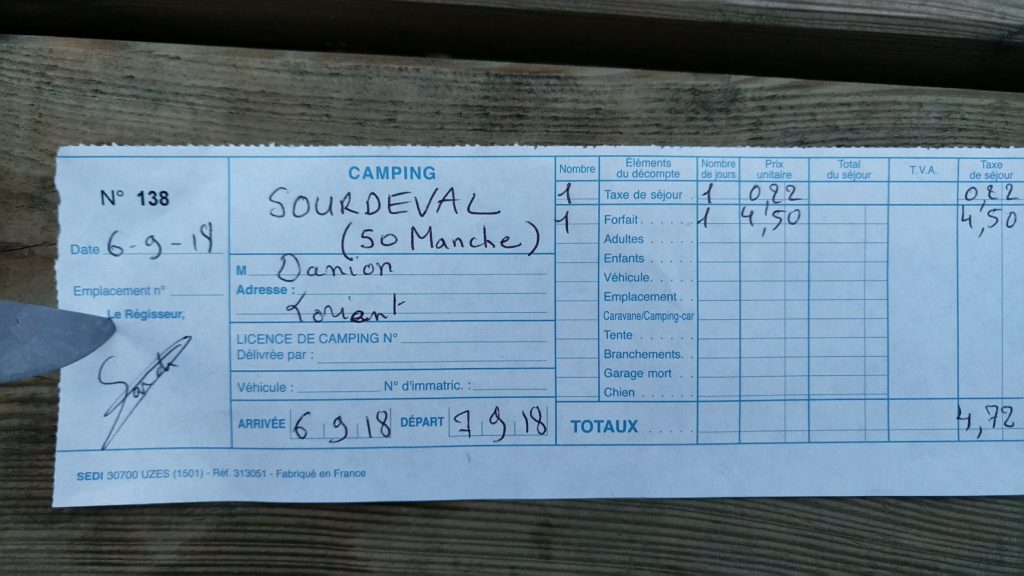 N° 138
Date 6-9-18
Emplacement n°
Le Régisseur,
CAMPING
SOURDEVAL
(50 Manche)
M Danion
Adresse :
Lorient
LICENCE DE CAMPING N°
Délivrée par :
Véhicule : N° d'immatric. :
ARRIVÉE 6 9 18 DÉPART 7 9 18
Nombre Éléments du décompte Nombre de jours Prix unitaire Total du séjour T.V.A. Taxe de séjour
1 Taxe de séjour 1 0,22 0,22
1 Forfait 1 4,50 4,50
Adultes
Enfants
Véhicule
Emplacement
Caravane/Camping-car
Tente
Branchements
Garage mort
Chien
TOTAUX 4,72
SEDI 30700 UZES (1501) - Réf. 313051 - Fabriqué en France